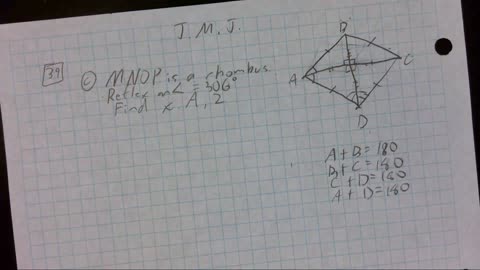 J. M. J.
39 c) MNOP is a rhombus.
Reflex m∠ = 306°
Find x A, 2
B
A
C
D
A + B = 180
B + C = 180
C + D = 180
A + D = 180